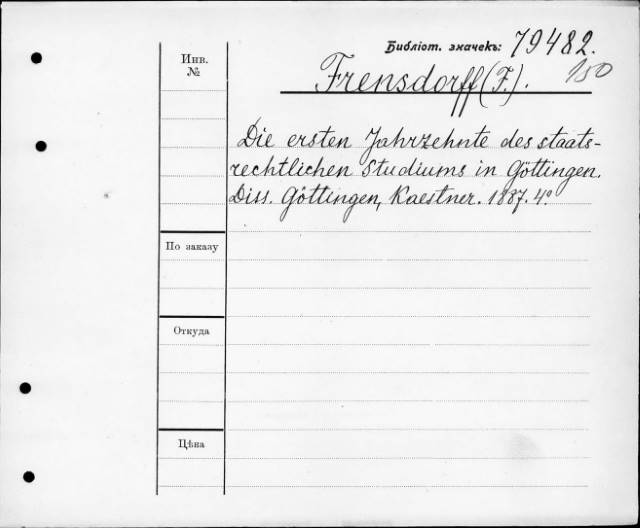 Библіот. значекъ: 79482.
150
Инв.
№
Frensdorff (F.).
Die ersten Jahrzehnte des staats-
rechtlichen Studiums in Göttingen.
Diss. Göttingen, Kaestner. 1887. 4°
По заказу
Откуда
Цѣна